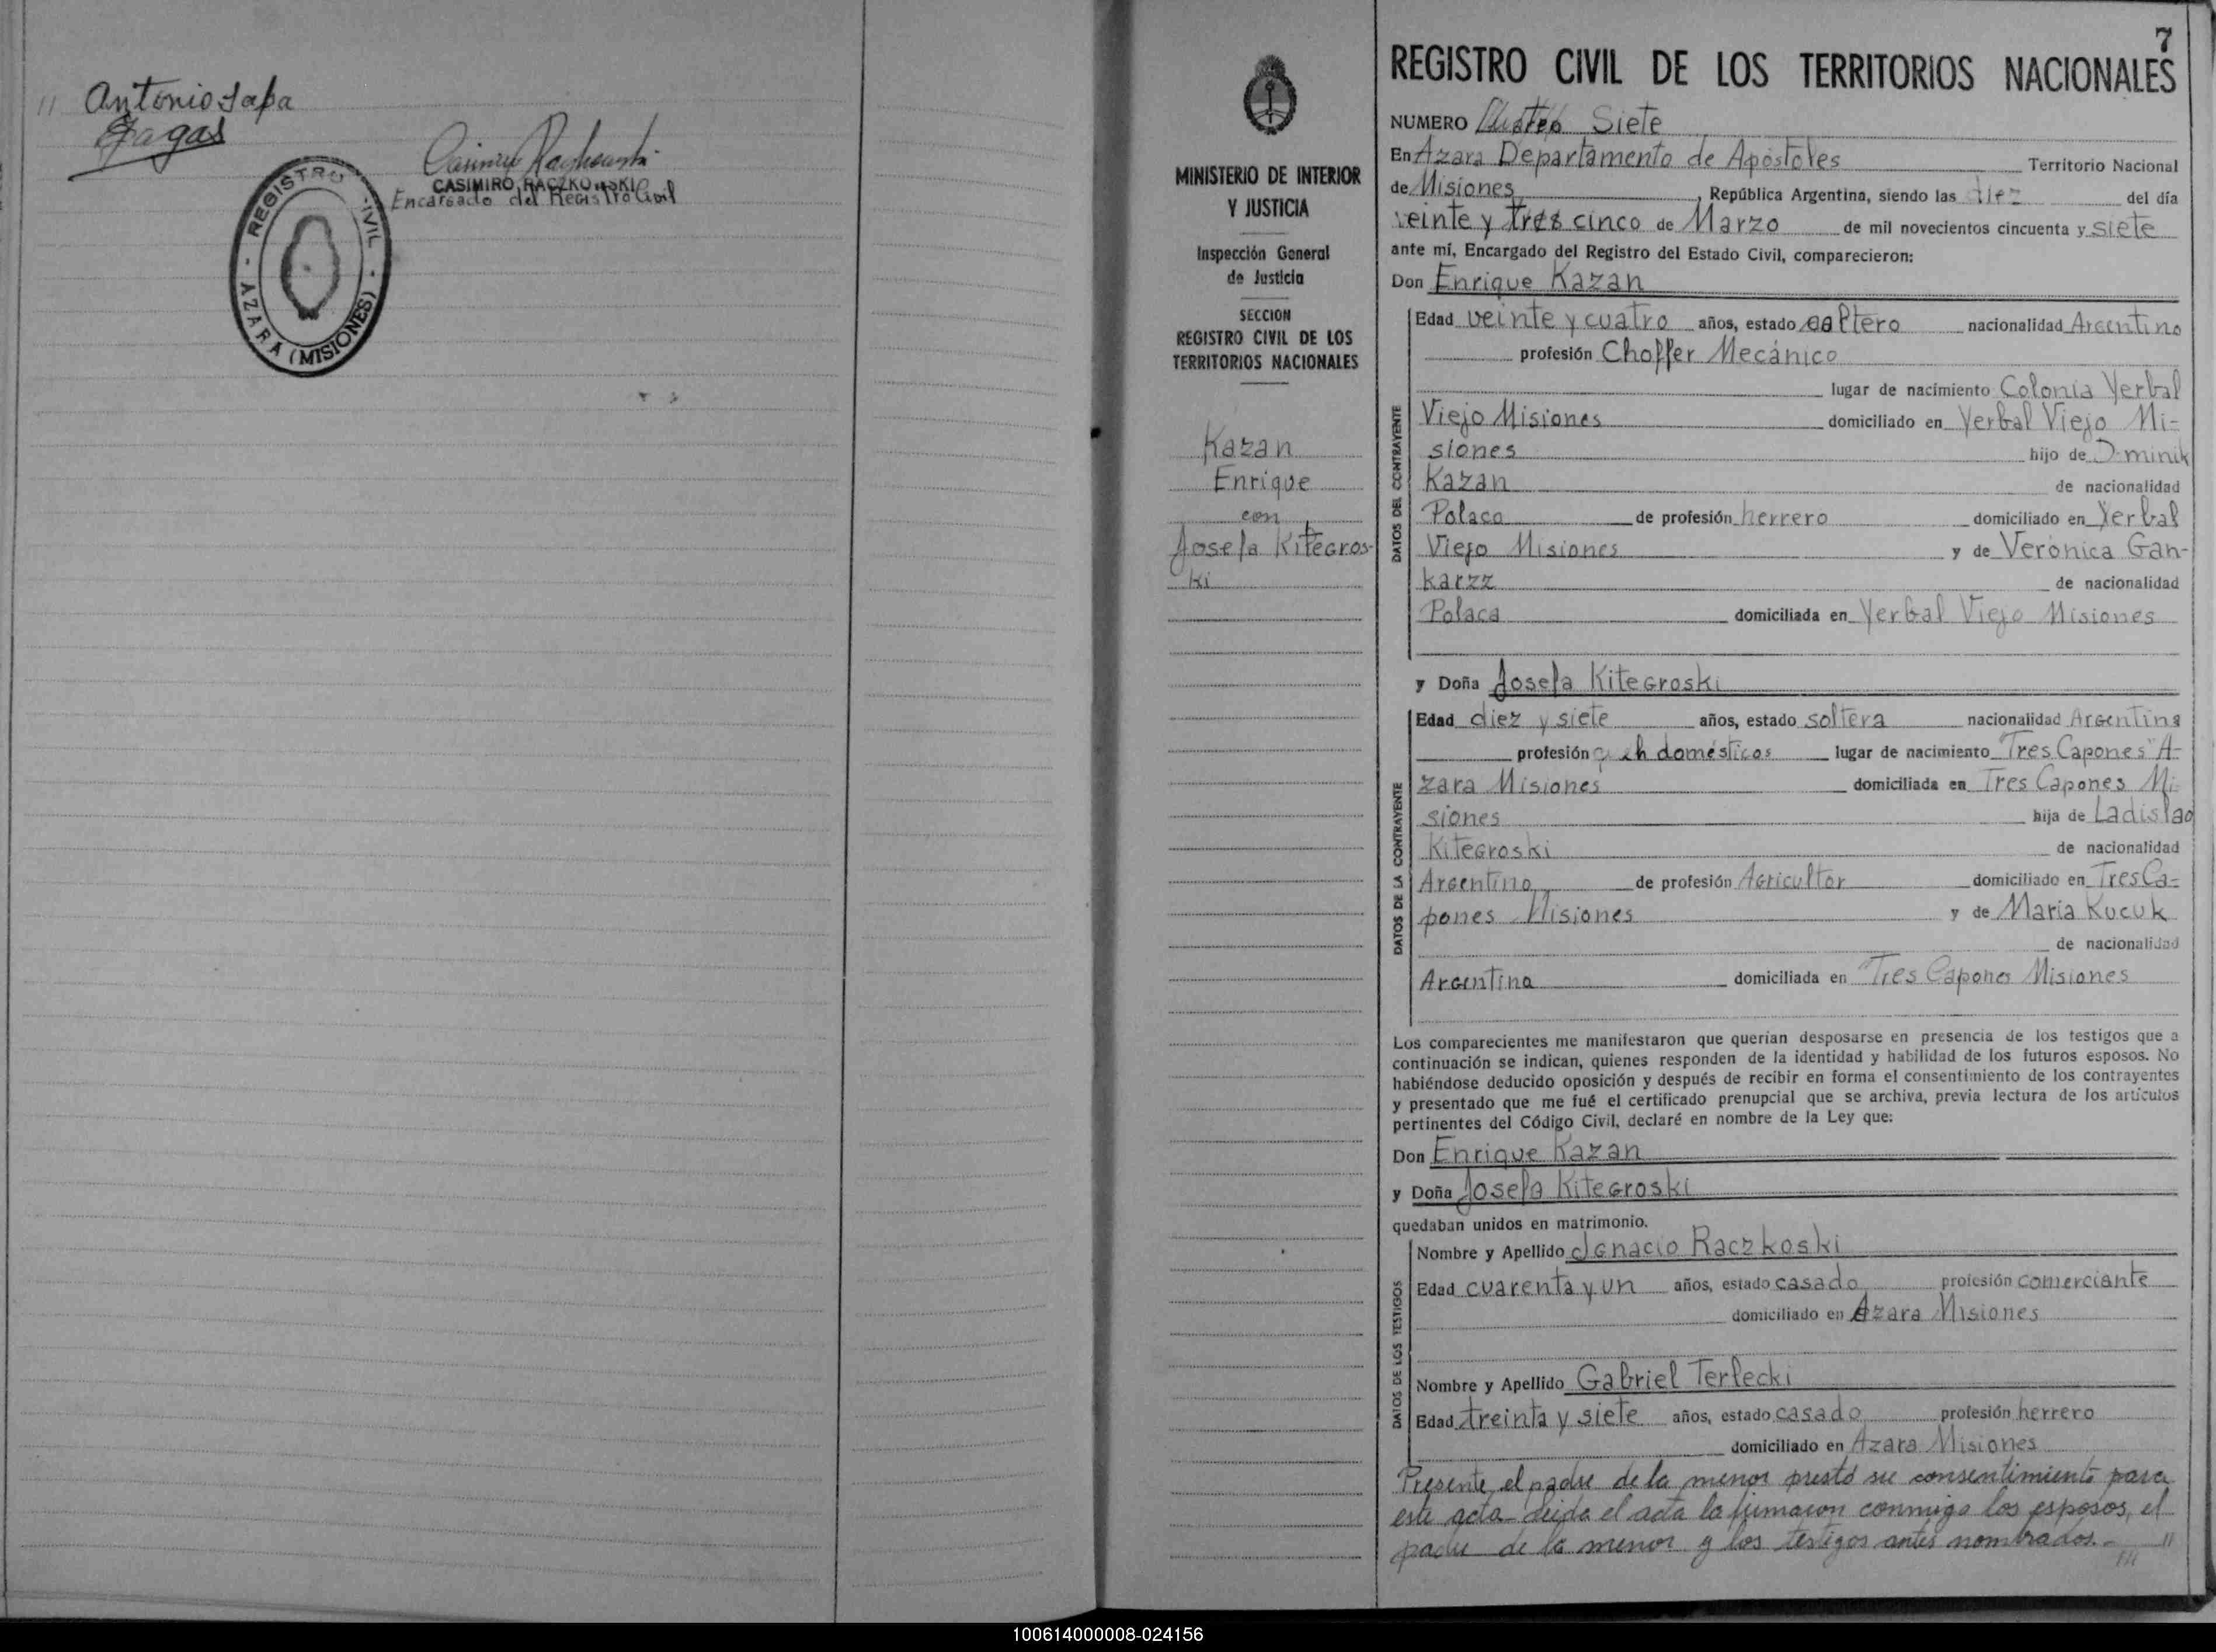 " Antonio
Fagas
CASIMIRO RACZKOWSKI
Encargado del Registro Civil
REGISTRO CIVIL
- AZARA (MISIONES) -
MINISTERIO DE INTERIOR
Y JUSTICIA
Inspección General
de Justicia
SECCION
REGISTRO CIVIL DE LOS
TERRITORIOS NACIONALES
Kazan
Enrique
con
Josefa Kitegros-
ki
7
REGISTRO CIVIL DE LOS TERRITORIOS NACIONALES
NUMERO Siete
En Azara Departamento de Apóstoles Territorio Nacional
de Misiones, República Argentina, siendo las diez del día
veinte y tres cinco de Marzo de mil novecientos cincuenta y siete
ante mí, Encargado del Registro del Estado Civil, comparecieron:
Don Enrique Kazan
DATOS DEL CONTRAYENTE
Edad veinte y cuatro años, estado soltero nacionalidad Argentino
profesión Choffer Mecánico
lugar de nacimiento Colonia Yerbal
Viejo Misiones domiciliado en Yerbal Viejo Mi-
siones hijo de Dominik
Kazan de nacionalidad
Polaca de profesión herrero domiciliado en Yerbal
Viejo Misiones y de Verónica Gan-
karzz de nacionalidad
Polaca domiciliada en Yerbal Viejo Misiones
y Doña Josefa Kitegroski
DATOS DE LA CONTRAYENTE
Edad diez y siete años, estado soltera nacionalidad Argentina
profesión q eh domésticos lugar de nacimiento "Tres Capones" A-
zara Misiones domiciliada en Tres Capones Mi
siones hija de Ladislao
Kitegroski de nacionalidad
Argentino de profesión Agricultor domiciliado en Tres Ca-
pones Misiones y de María Kucuk
de nacionalidad
Argentina domiciliada en Tres Capones Misiones
Los comparecientes me manifestaron que querían desposarse en presencia de los testigos que a
continuación se indican, quienes responden de la identidad y habilidad de los futuros esposos. No
habiéndose deducido oposición y después de recibir en forma el consentimiento de los contrayentes
y presentado que me fué el certificado prenupcial que se archiva, previa lectura de los artículos
pertinentes del Código Civil, declaré en nombre de la Ley que:
Don Enrique Kazan
y Doña Josefa Kitegroski
quedaban unidos en matrimonio.
DATOS DE LOS TESTIGOS
Nombre y Apellido Ignacio Raczkoski
Edad cuarenta y un años, estado casado profesión comerciante
domiciliado en Azara Misiones
Nombre y Apellido Gabriel Terlecki
Edad treinta y siete años, estado casado profesión herrero
domiciliado en Azara Misiones
Presente el padre de la menor prestó su consentimiento para
este acta leida el acta la firmaron conmigo los esposos, el
padre de la menor y los testigos antes nombrados.- "
100614000008-024156